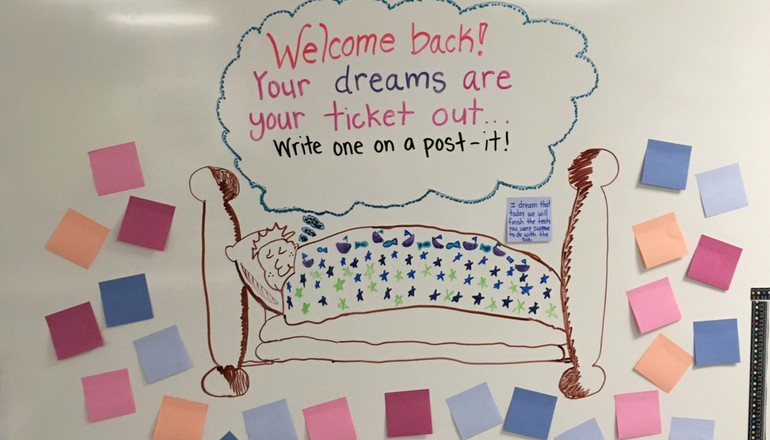 Welcome back!
Your dreams are
your ticket out...
Write one on a post-it!
I dream that
today we will
finish the tests
you were suppose
to do with the
sub.